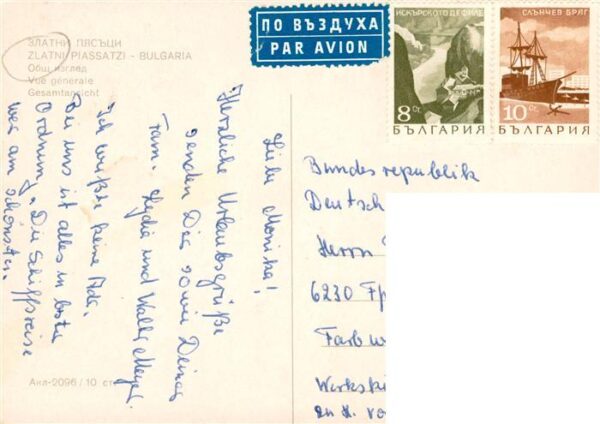 ЗЛАТНИ ПЯСЪЦИ
ZLATNI PIASSATZI - BULGARIA
Общ изглед
Vue générale
Gesamtansicht
ПО ВЪЗДУХА
PAR AVION
ИСКЪРСКОТО ДЕФИЛЕ
8 Ст.
БЪЛГАРИЯ
СЛЪНЧЕВ БРЯГ
10 Ст.
БЪЛГАРИЯ
Liebe Monika!
Herzliche Urlaubsgrüße
senden Dir sowie Deiner
Fam. Lydia und Walter Meyer.
Ich wußte keine Adr.
Bei uns ist alles in bester
Ordnung. Die Schiffsreise
war am schönsten.
Bundesrepublik
Deutsch
Herrn
6230 F
Farbw
Werks
zu H. vo
Анл-2096/10 ст